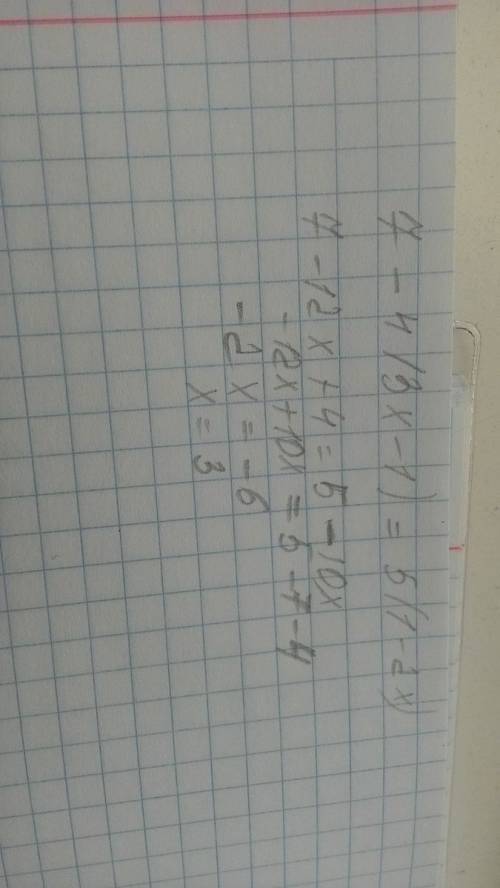 7 - 4(3x-1) = 5(1-2x)
7 - 12x + 4 = 5 - 10x
-12x + 10x = 5 - 7 - 4
-2x = -6
x = 3